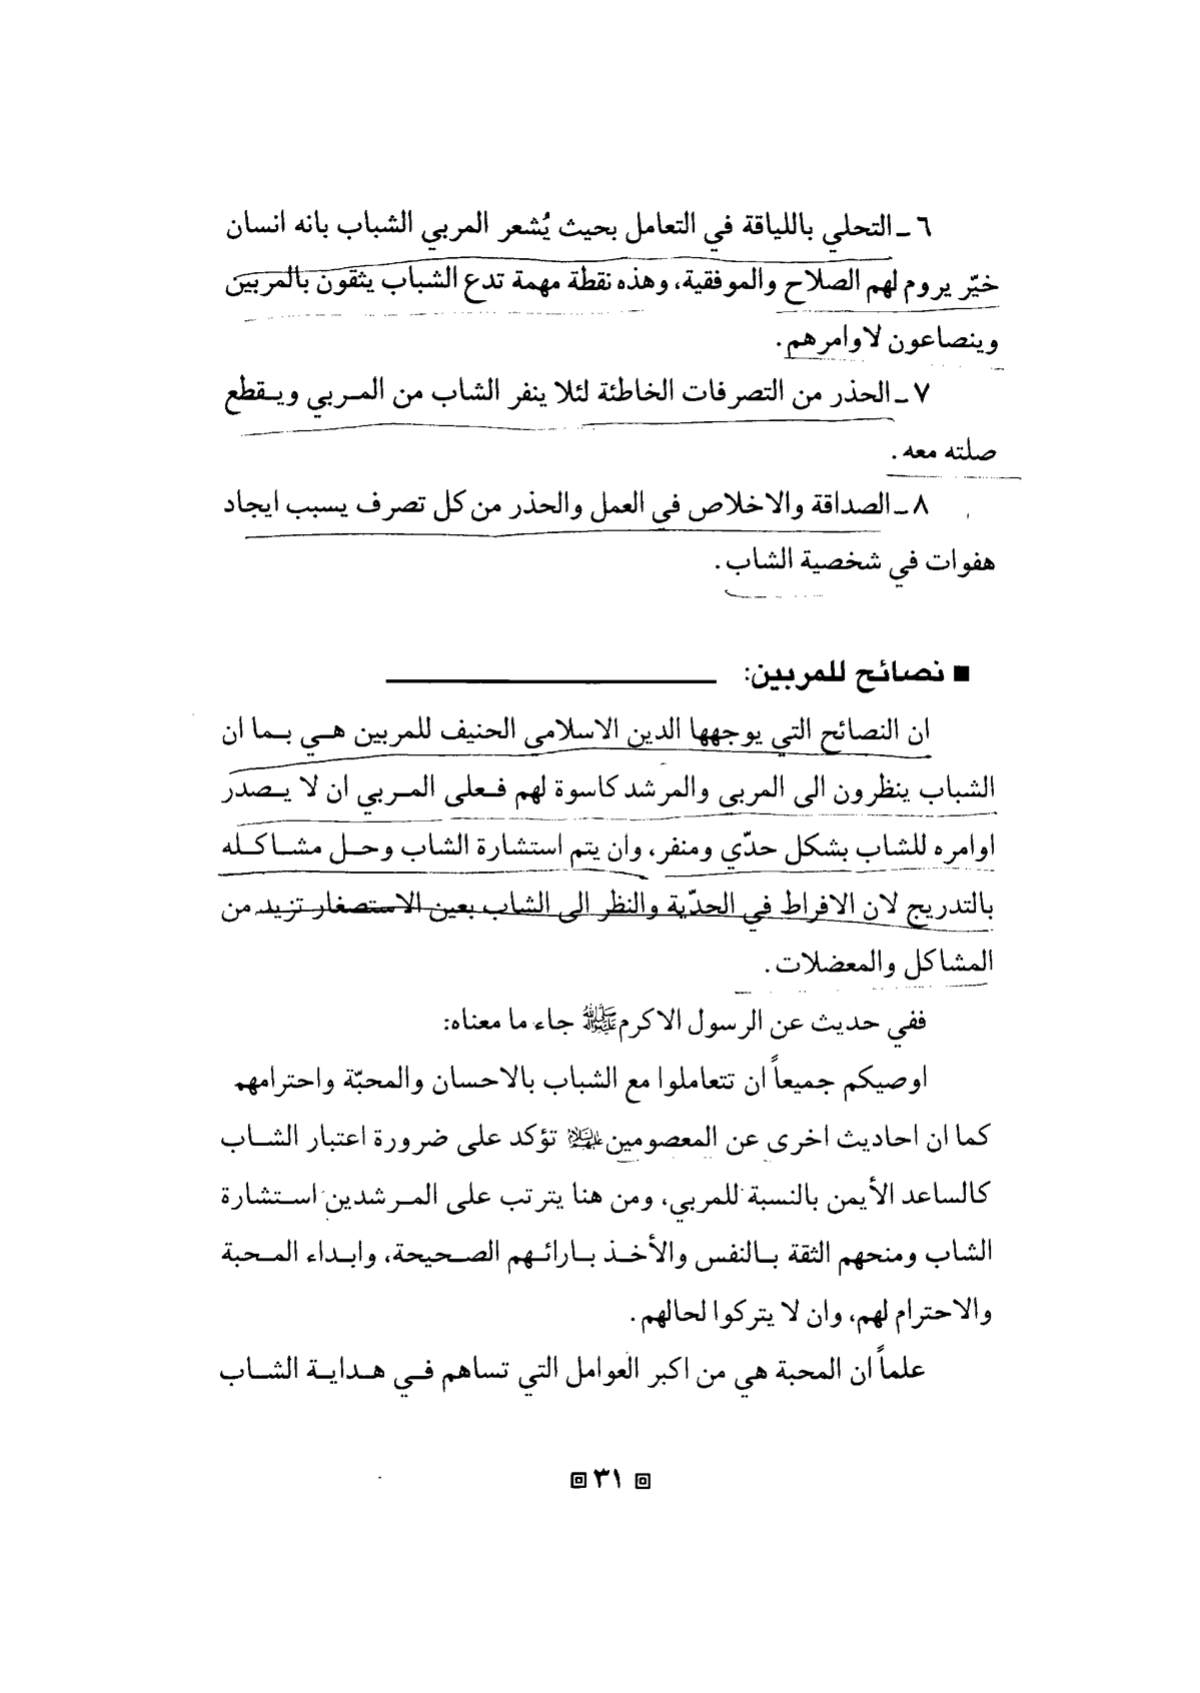 ٦ ـ التحلي باللياقة في التعامل بحيث يُشعر المربي الشباب بانه انسان
خيّر يروم لهم الصلاح والموفقية، وهذه نقطة مهمة تدع الشباب يثقون بالمربين
وينصاعون لاوامرهم.
٧ ـ الحذر من التصرفات الخاطئة لئلا ينفر الشاب من المربي ويقطع
صلته معه.
٨ ـ الصداقة والاخلاص في العمل والحذر من كل تصرف يسبب ايجاد
هفوات في شخصية الشاب.
■ نصائح للمربين:
ان النصائح التي يوجهها الدين الاسلامي الحنيف للمربين هي بما ان
الشباب ينظرون الى المربي والمرشد كاسوة لهم فعلى المربي ان لا يصدر
اوامره للشاب بشكل حدّي ومنفر، وان يتم استشارة الشاب وحل مشاكله
بالتدريج لان الافراط في الحدّية والنظر الى الشاب بعين الاستصغار تزيد من
المشاكل والمعضلات.
ففي حديث عن الرسول الاكرم ﷺ جاء ما معناه:
اوصيكم جميعاً ان تتعاملوا مع الشباب بالاحسان والمحبّة واحترامهم
كما ان احاديث اخرى عن المعصومين عليهم السلام تؤكد على ضرورة اعتبار الشاب
كالساعد الأيمن بالنسبة للمربي، ومن هنا يترتب على المرشدين استشارة
الشاب ومنحهم الثقة بالنفس والأخذ بارائهم الصحيحة، وابداء المحبة
والاحترام لهم، وان لا يتركوا لحالهم.
علماً ان المحبة هي من اكبر العوامل التي تساهم في هداية الشاب
٣١